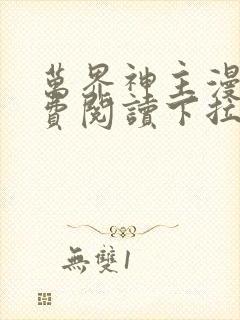 萬界神主漫
費閱讀下拉
無雙1